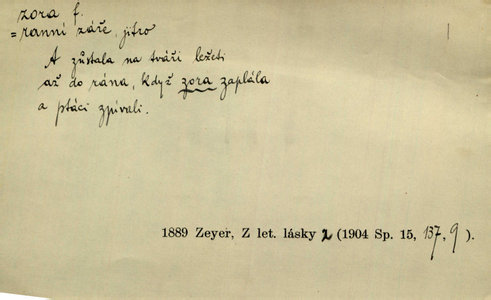 zora f.
= ranní záře, jitro
A zůstala na tváři ležeti
až do rána, když zora zaplála
a ptáci zpívali.
1889 Zeyer, Z let. lásky 2 (1904 Sp. 15, 137, 9).